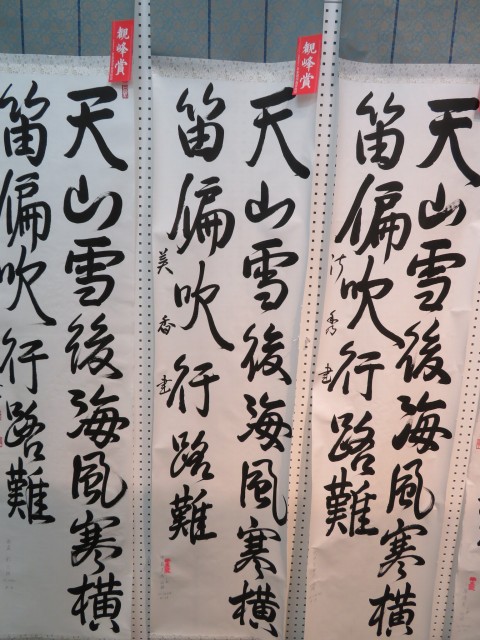 天山雪後海風寒横
笛偏吹行路難
観峰賞
天山雪後海風寒横
笛偏吹行路難
美香書
観峰賞
天山雪後海風寒横
笛偏吹行路難